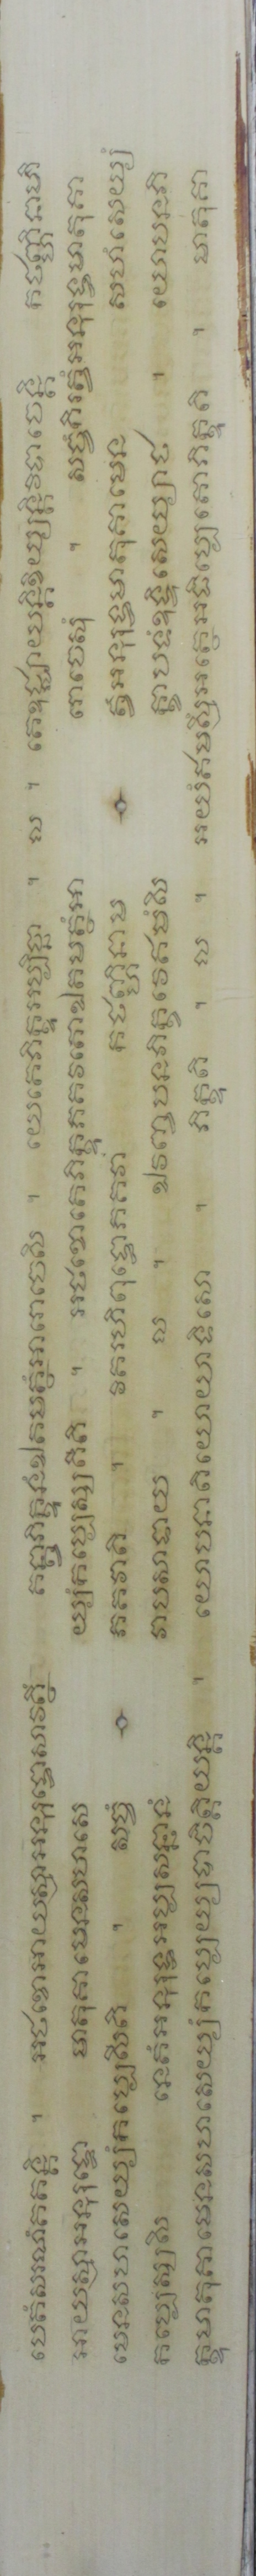 បេតំសរណំគតន្តិ ។ អថខោអាយស្មាអនុរុទ្ធោសាវត្ថិំ គន្ត្វាភិក្ខូនំឯតមត្ថំអារោចេសិ ។ យេតេភិក្ខូអប្បិច្ឆា ។ ល ។ តេឧជ្ឈាយន្តិខិយ្យន្តិវិបាចេន្តិ កថញ្ហិនាហិ
អាយស្មាអនុរុទ្ធោ មាតុគាមេនសហសេ យ្យំកប្បេស្សតីតិ ។ អថខោតេភិក្ខូភគវតោឯតមត្ថំអា រោចេសុំ ។ សច្ចំកិរត្វំអនុរុទ្ធមាតុគា
មេនសហសេយ្យំកប្បេសីតិ ។ សច្ចំ ភគវាតិ ។ វិគរហិពុទ្ធោភគវា កថញ្ហិនាម ត្វំអនុរុទ្ធមាតុគាមេន សហសេយ្យំ
កប្បេស្សសិ នេតំអនុរុទ្ធអប្បសន្នានំ វាបសាទាយ ។ ល ។ ឯវញ្ចបនភិក្ខវេឥមំសិ ក្ខាបទំឧទ្ទិសេយ្យាថ ។ យោបនភិ
ក្ខុមាតុគាមេនសហសេយ្យំកប្បេយ្យបាចិត្តិយន្តិ ។ យោបនាតិយោយាទិសោ ។ ភិក្ខូតិ ។ ល ។ អយំឥមស្មិំអត្ថេអធិប្បេតោភិក្ខូតិ ។ មាតុគា